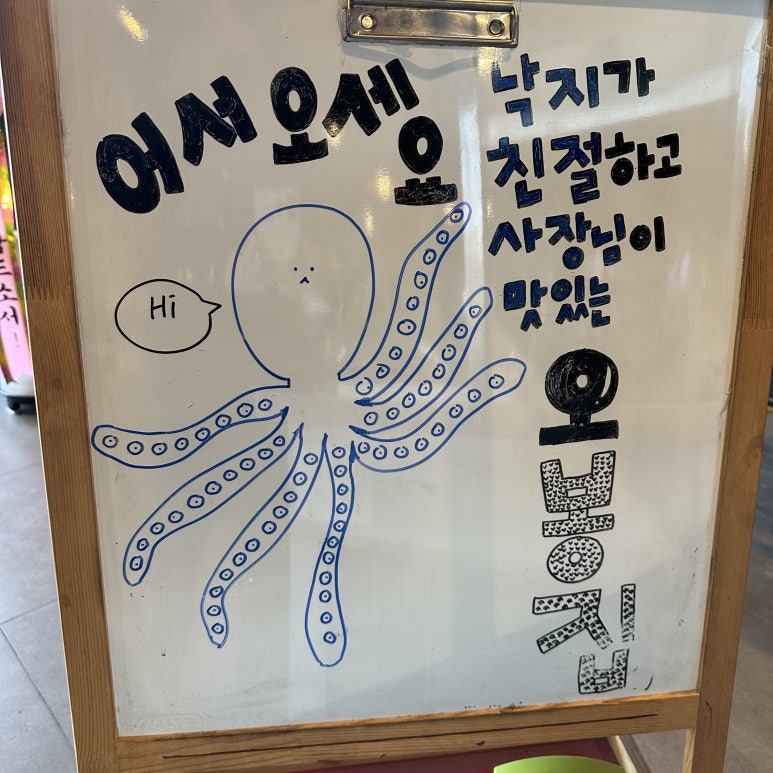 어서오세요
Hi
낙지가
친절하고
사장님이
맛있는
오봉집